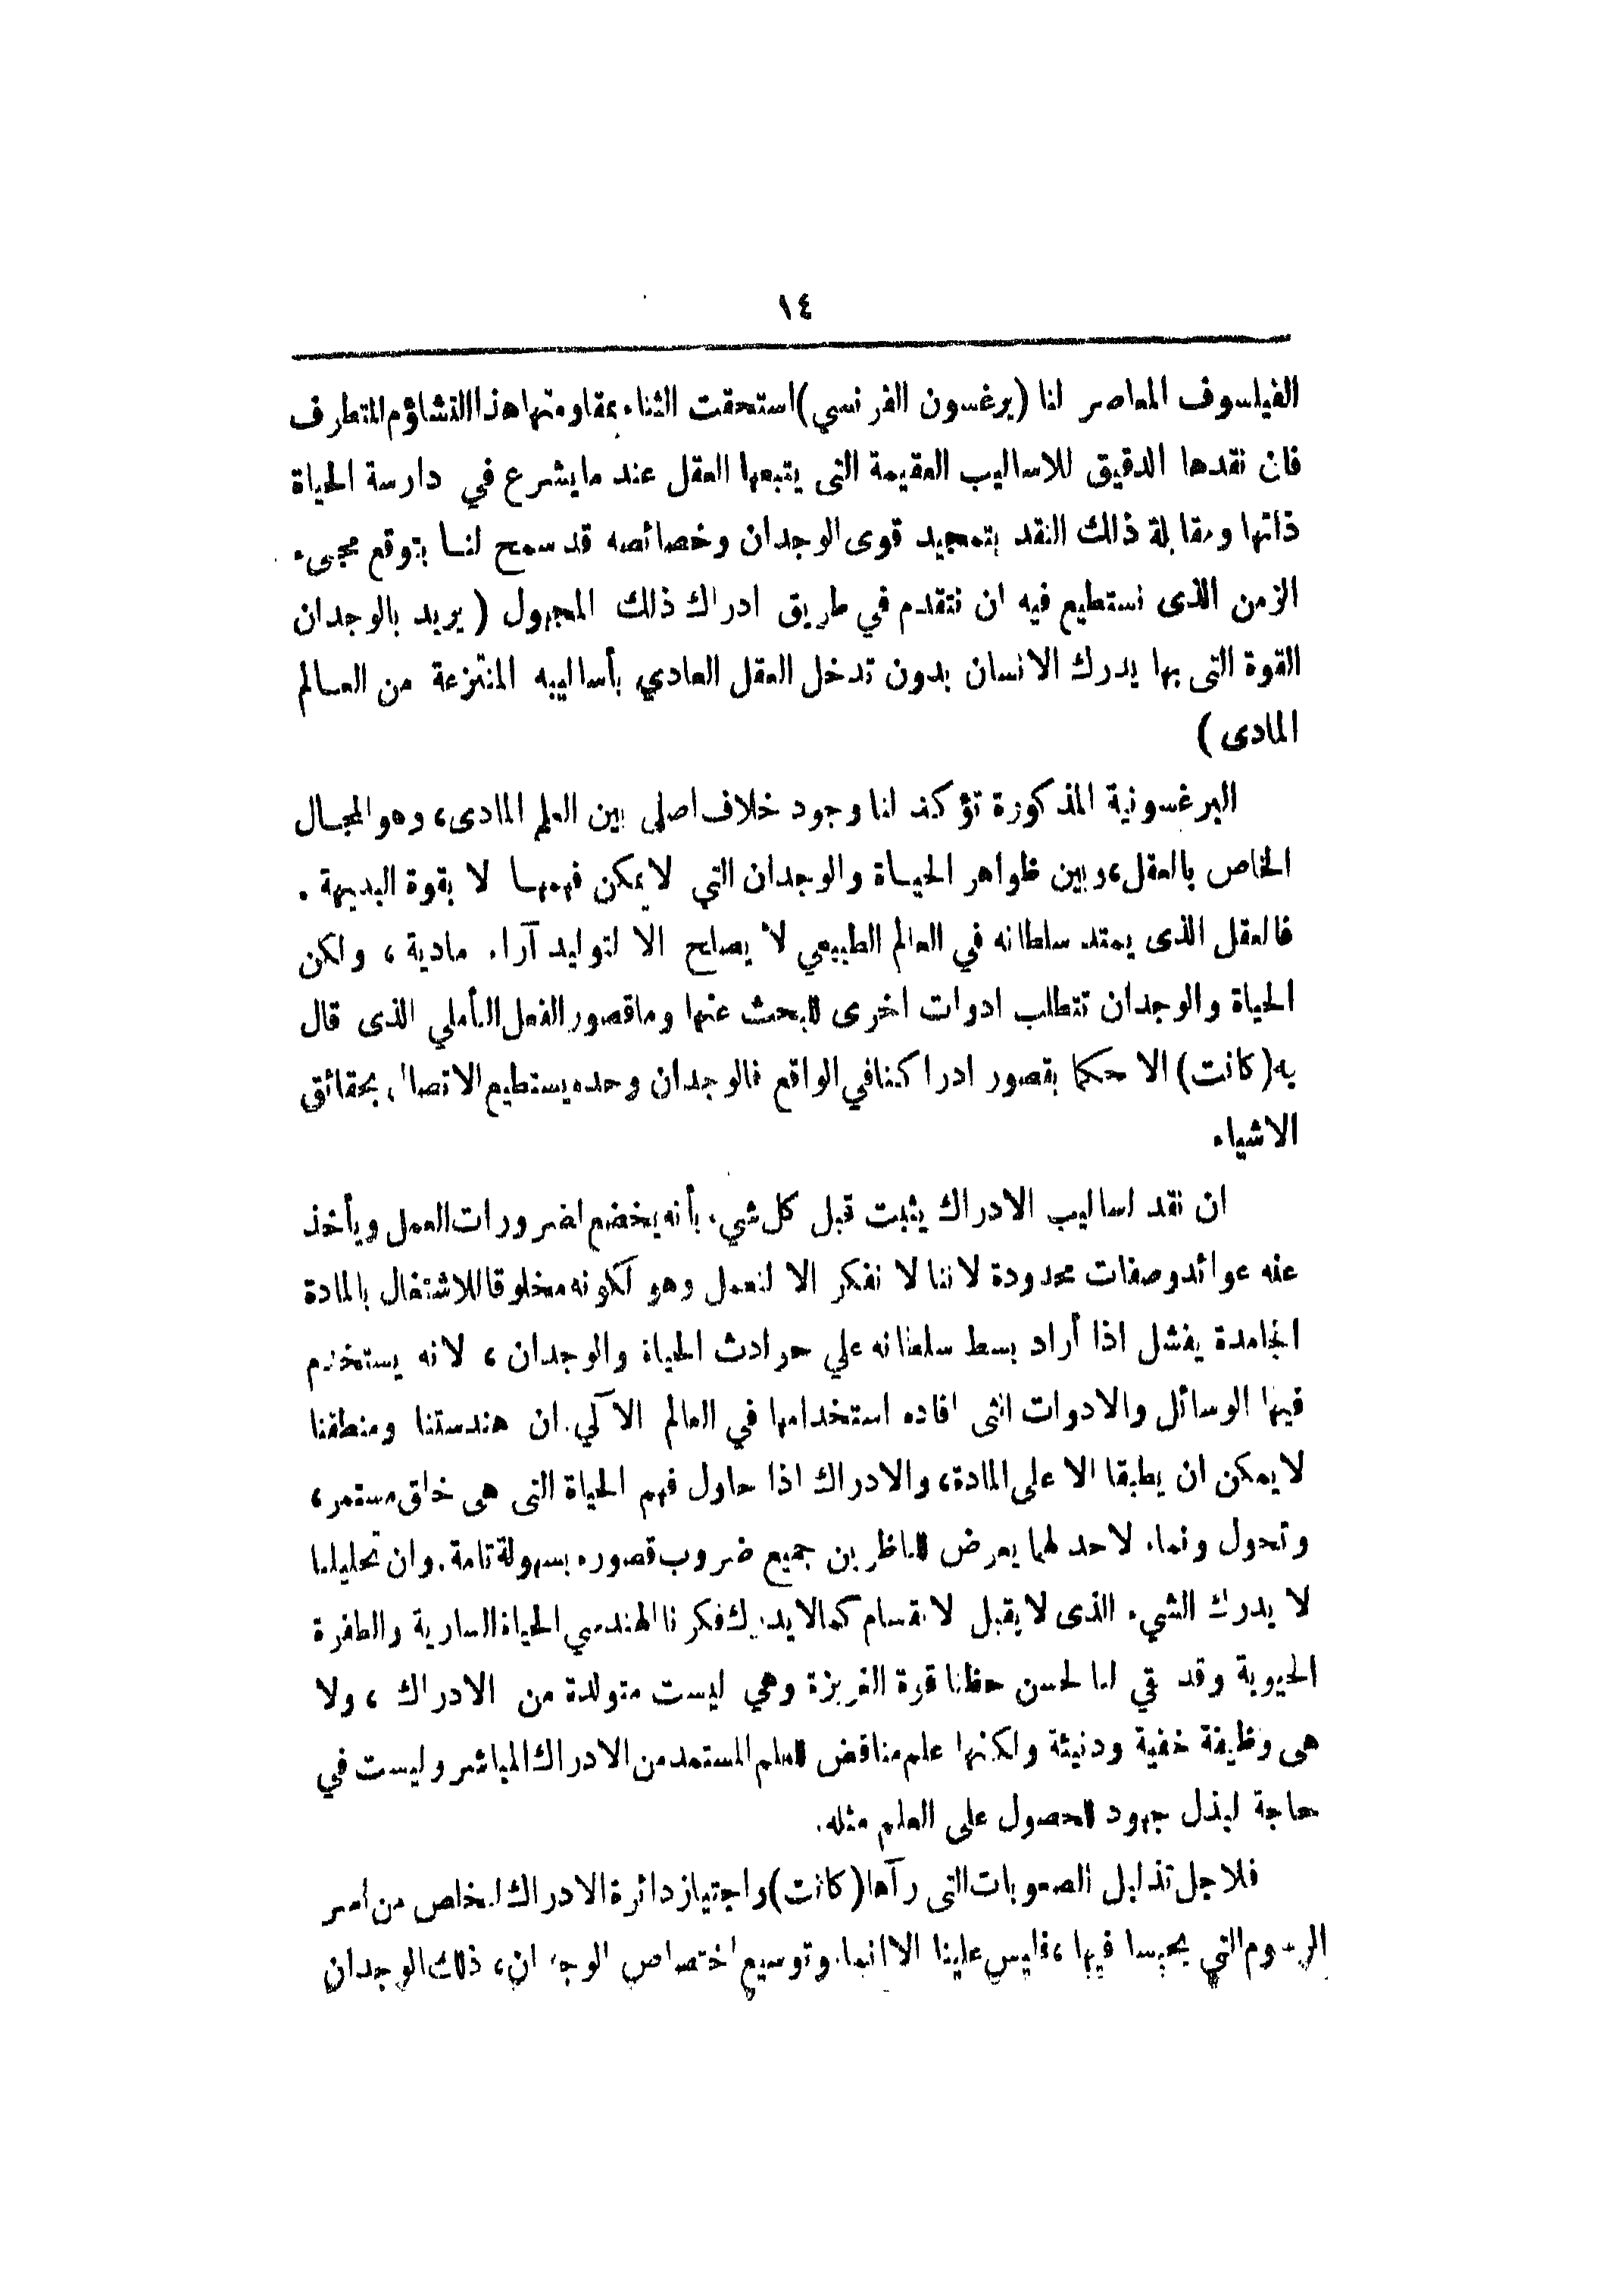 ١٤
الفيلسوف المعاصر لنا (برغسون الفرنسي) استحقت الثناء بمقاومتها هذا التشاؤم المتطرف
فان نقدها الدقيق للاساليب العقيمة التى يتبعها العقل عند ما يشرع في دارسة الحياة
ذاتها ومقابلة ذلك النقد بتمجيد قوى الوجدان وخصائصه قد سمح لنا بتوقع مجىء
الزمن الذى نستطيع فيه ان نتقدم في طريق ادراك ذلك المجهول ( يريد بالوجدان
القوة التى بها يدرك الانسان بدون تدخل العقل العادي بأساليبه المنتزعة من العالم
المادى )
البرغسونية المذكورة تؤكد لنا وجود خلاف اصلى بين العلم المادى، وهو المجال
الخاص بالعقل، وبين ظواهر الحياة والوجدان التي لا يمكن فهمها لا بقوة البديهة .
فالعقل الذى يمتد سلطانه في العالم الطبيعي لا يصلح الا لتوليد آراء مادية ، ولكن
الحياة والوجدان تتطلب ادوات اخرى للبحث عنها وما قصور الفعل التأملي الذى قال
به (كانت) الا حكما بقصور ادراكنا في الواقع فالوجدان وحده يستطيع الاتصال بحقائق
الاشياء
ان نقد اساليب الادراك يثبت قبل كل شيء بأنه يخضع لضرورات العمل ويأخذ
عنه عوائد وصفات محدودة لاننا لا نفكر الا لنعمل وهو لكونه مخلوقا للاشتغال بالمادة
الجامدة يفشل اذا أراد بسط سلطانه علي حوادث الحياة والوجدان ، لانه يستخدم
فيها الوسائل والادوات التى افاده استخدامها في العالم الآلي. ان هندستنا ومنطقنا
لا يمكن ان يطبقا الا على المادة، والادراك اذا حاول فهم الحياة التى هى خلق مستمر،
وتحول ونماء لا حد لهما يعرض للناظرين جميع ضروب قصوره بسهولة تامة. وان تحليلنا
لا يدرك الشيء الذى لا يقبل لانقسام كما لا يدرك فكرنا الهندسي الحياة السارية والطفرة
الحيوية وقد بقي لنا لحسن حظنا قوة الغريزة وهي ليست متولدة من الادراك ، ولا
هى وظيفة خفية ودنيئة ولكنها علم مناقض للعلم المستمد من الادراك المباشر وليست في
حاجة لبذل جهود للحصول على العلم مثله.
فلاجل تذليل الصعوبات التى رآها (كانت) واجتياز دائرة الادراك لنخلص من اسر
الرسوم التي يحبسنا فيها، فليس علينا الا انماء وتوسيع اختصاص الوجدان، ذلك الوجدان